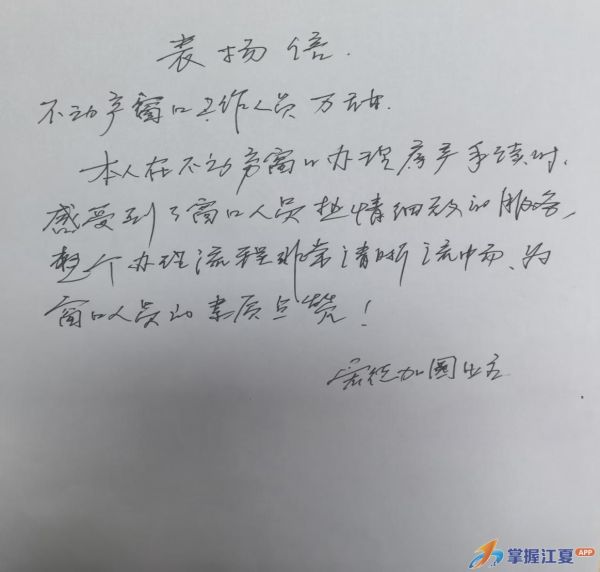 表扬信
不动产窗口工作人员万
本人在不动产窗口办理房产手续时,
感受到了窗口人员热情细致的服务,
整个办理流程非常清晰流畅、为
窗口人员的素质点赞!
业主
掌握江夏 APP